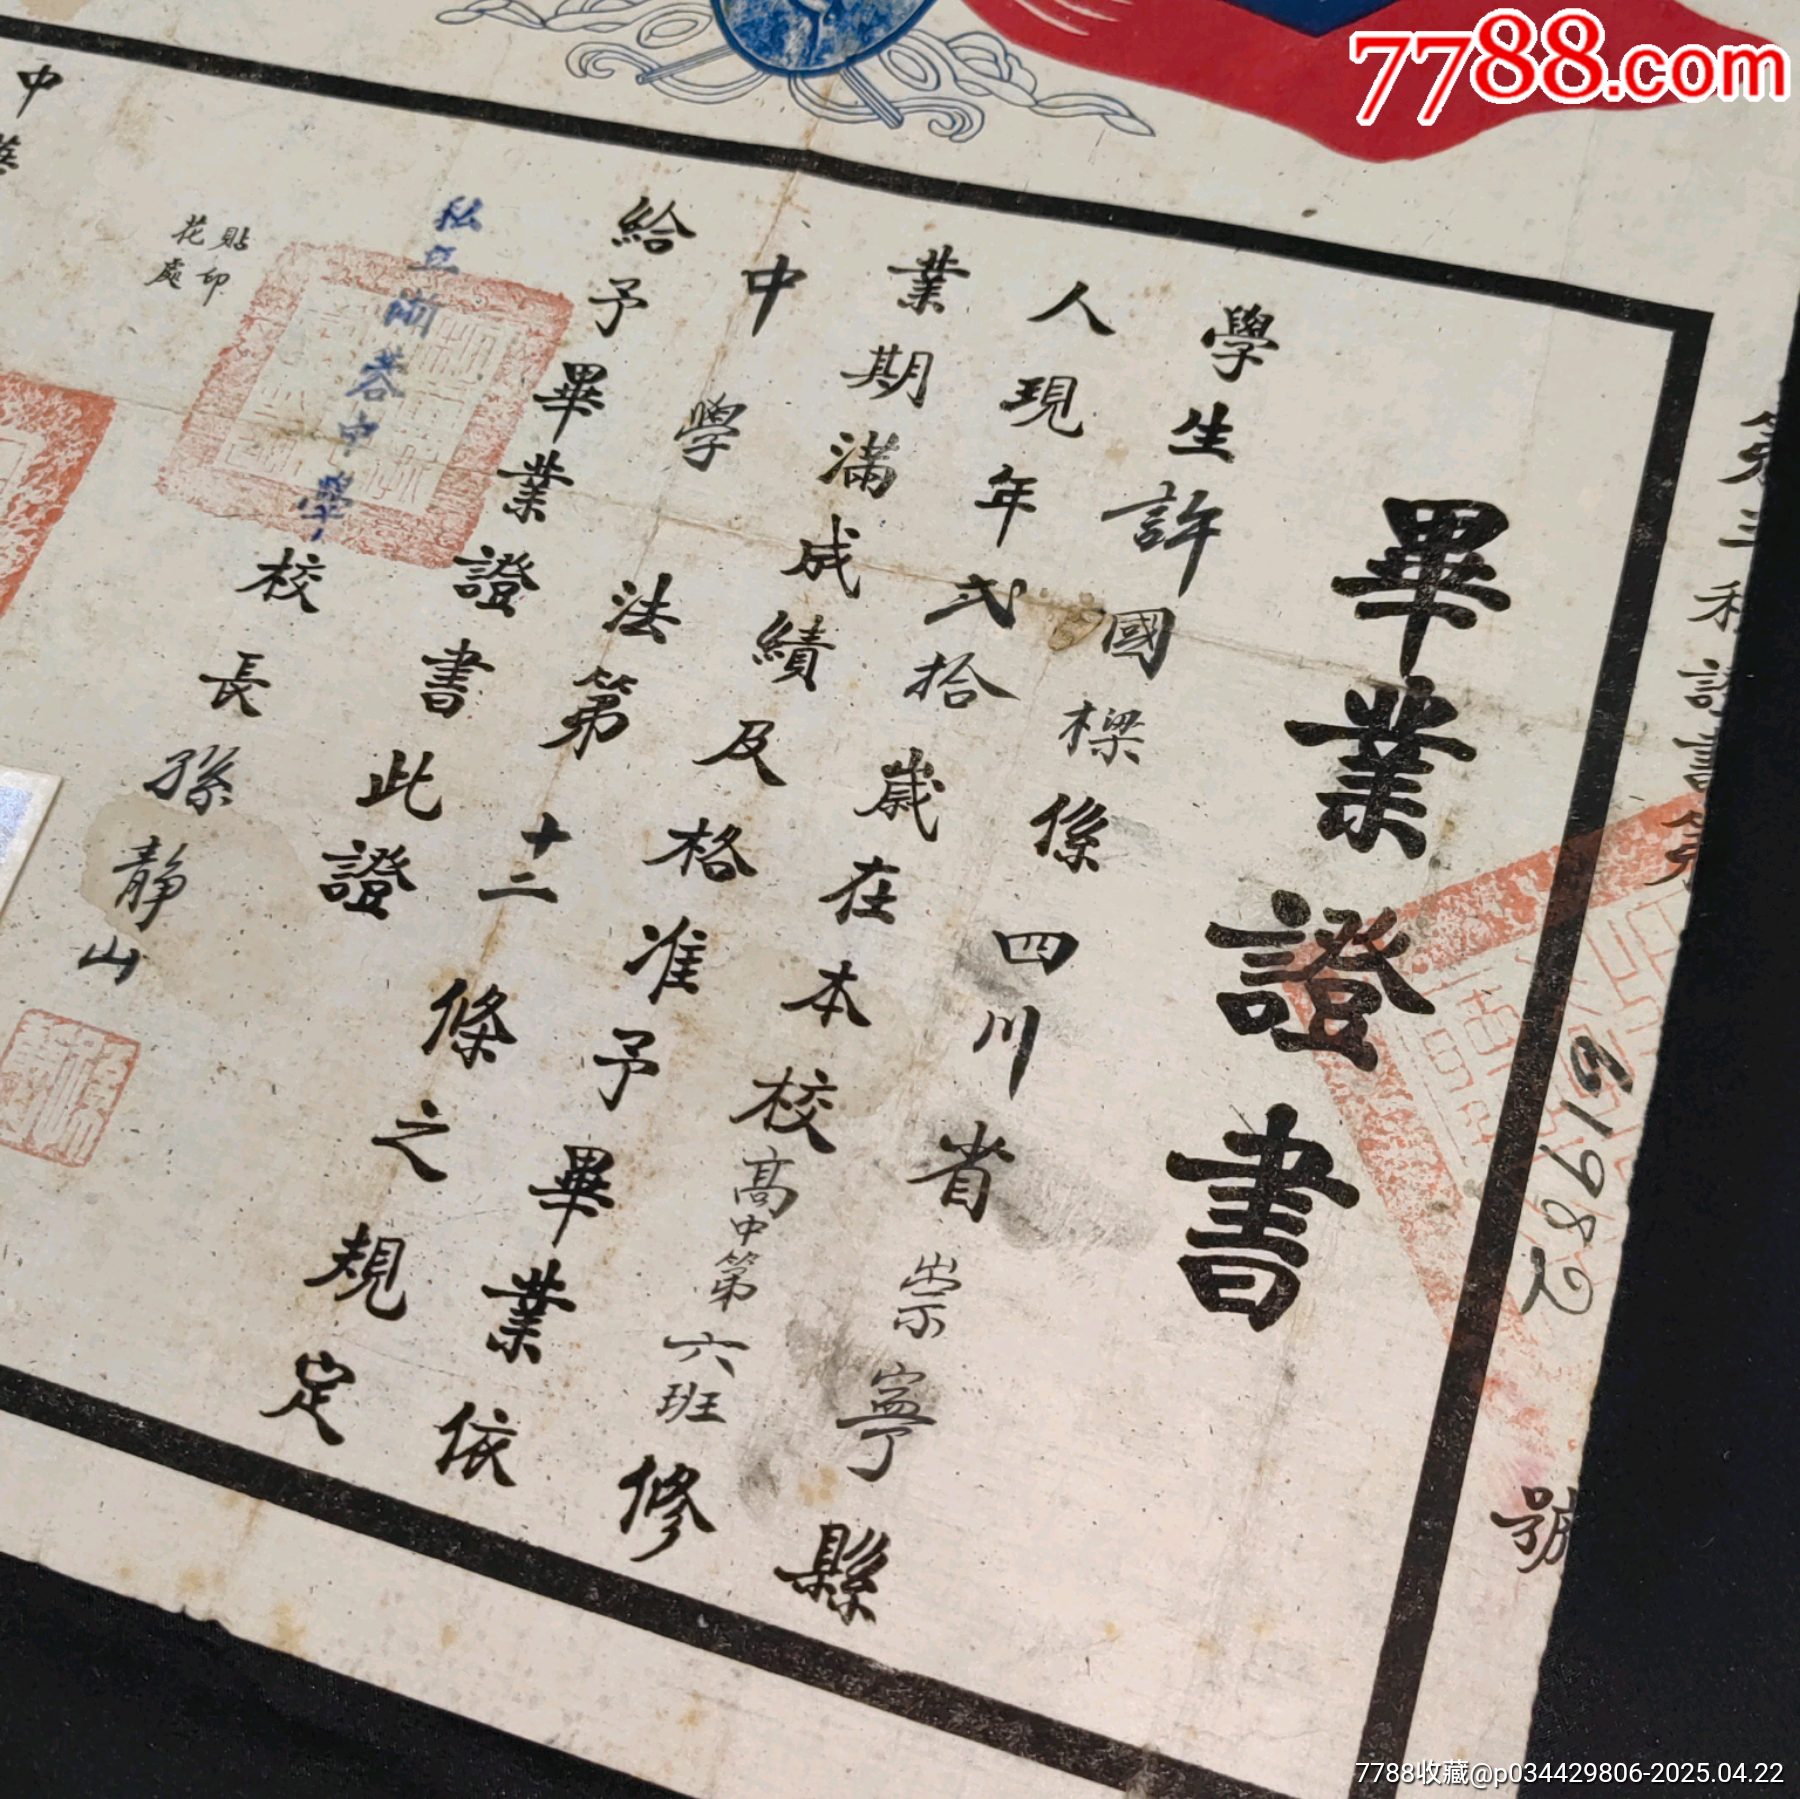 7788.com
畢業證書
學生許國樑係四川省崇寧縣
人現年弍拾歲在本校高中第六班修
業期滿成績及格准予畢業依
中學法第十二條之規定
給予畢業證書此證
私立浙蓉中學
校長孫靜山
貼印
花處
中華
51982
號
7788收藏@p034429806-2025.04.22